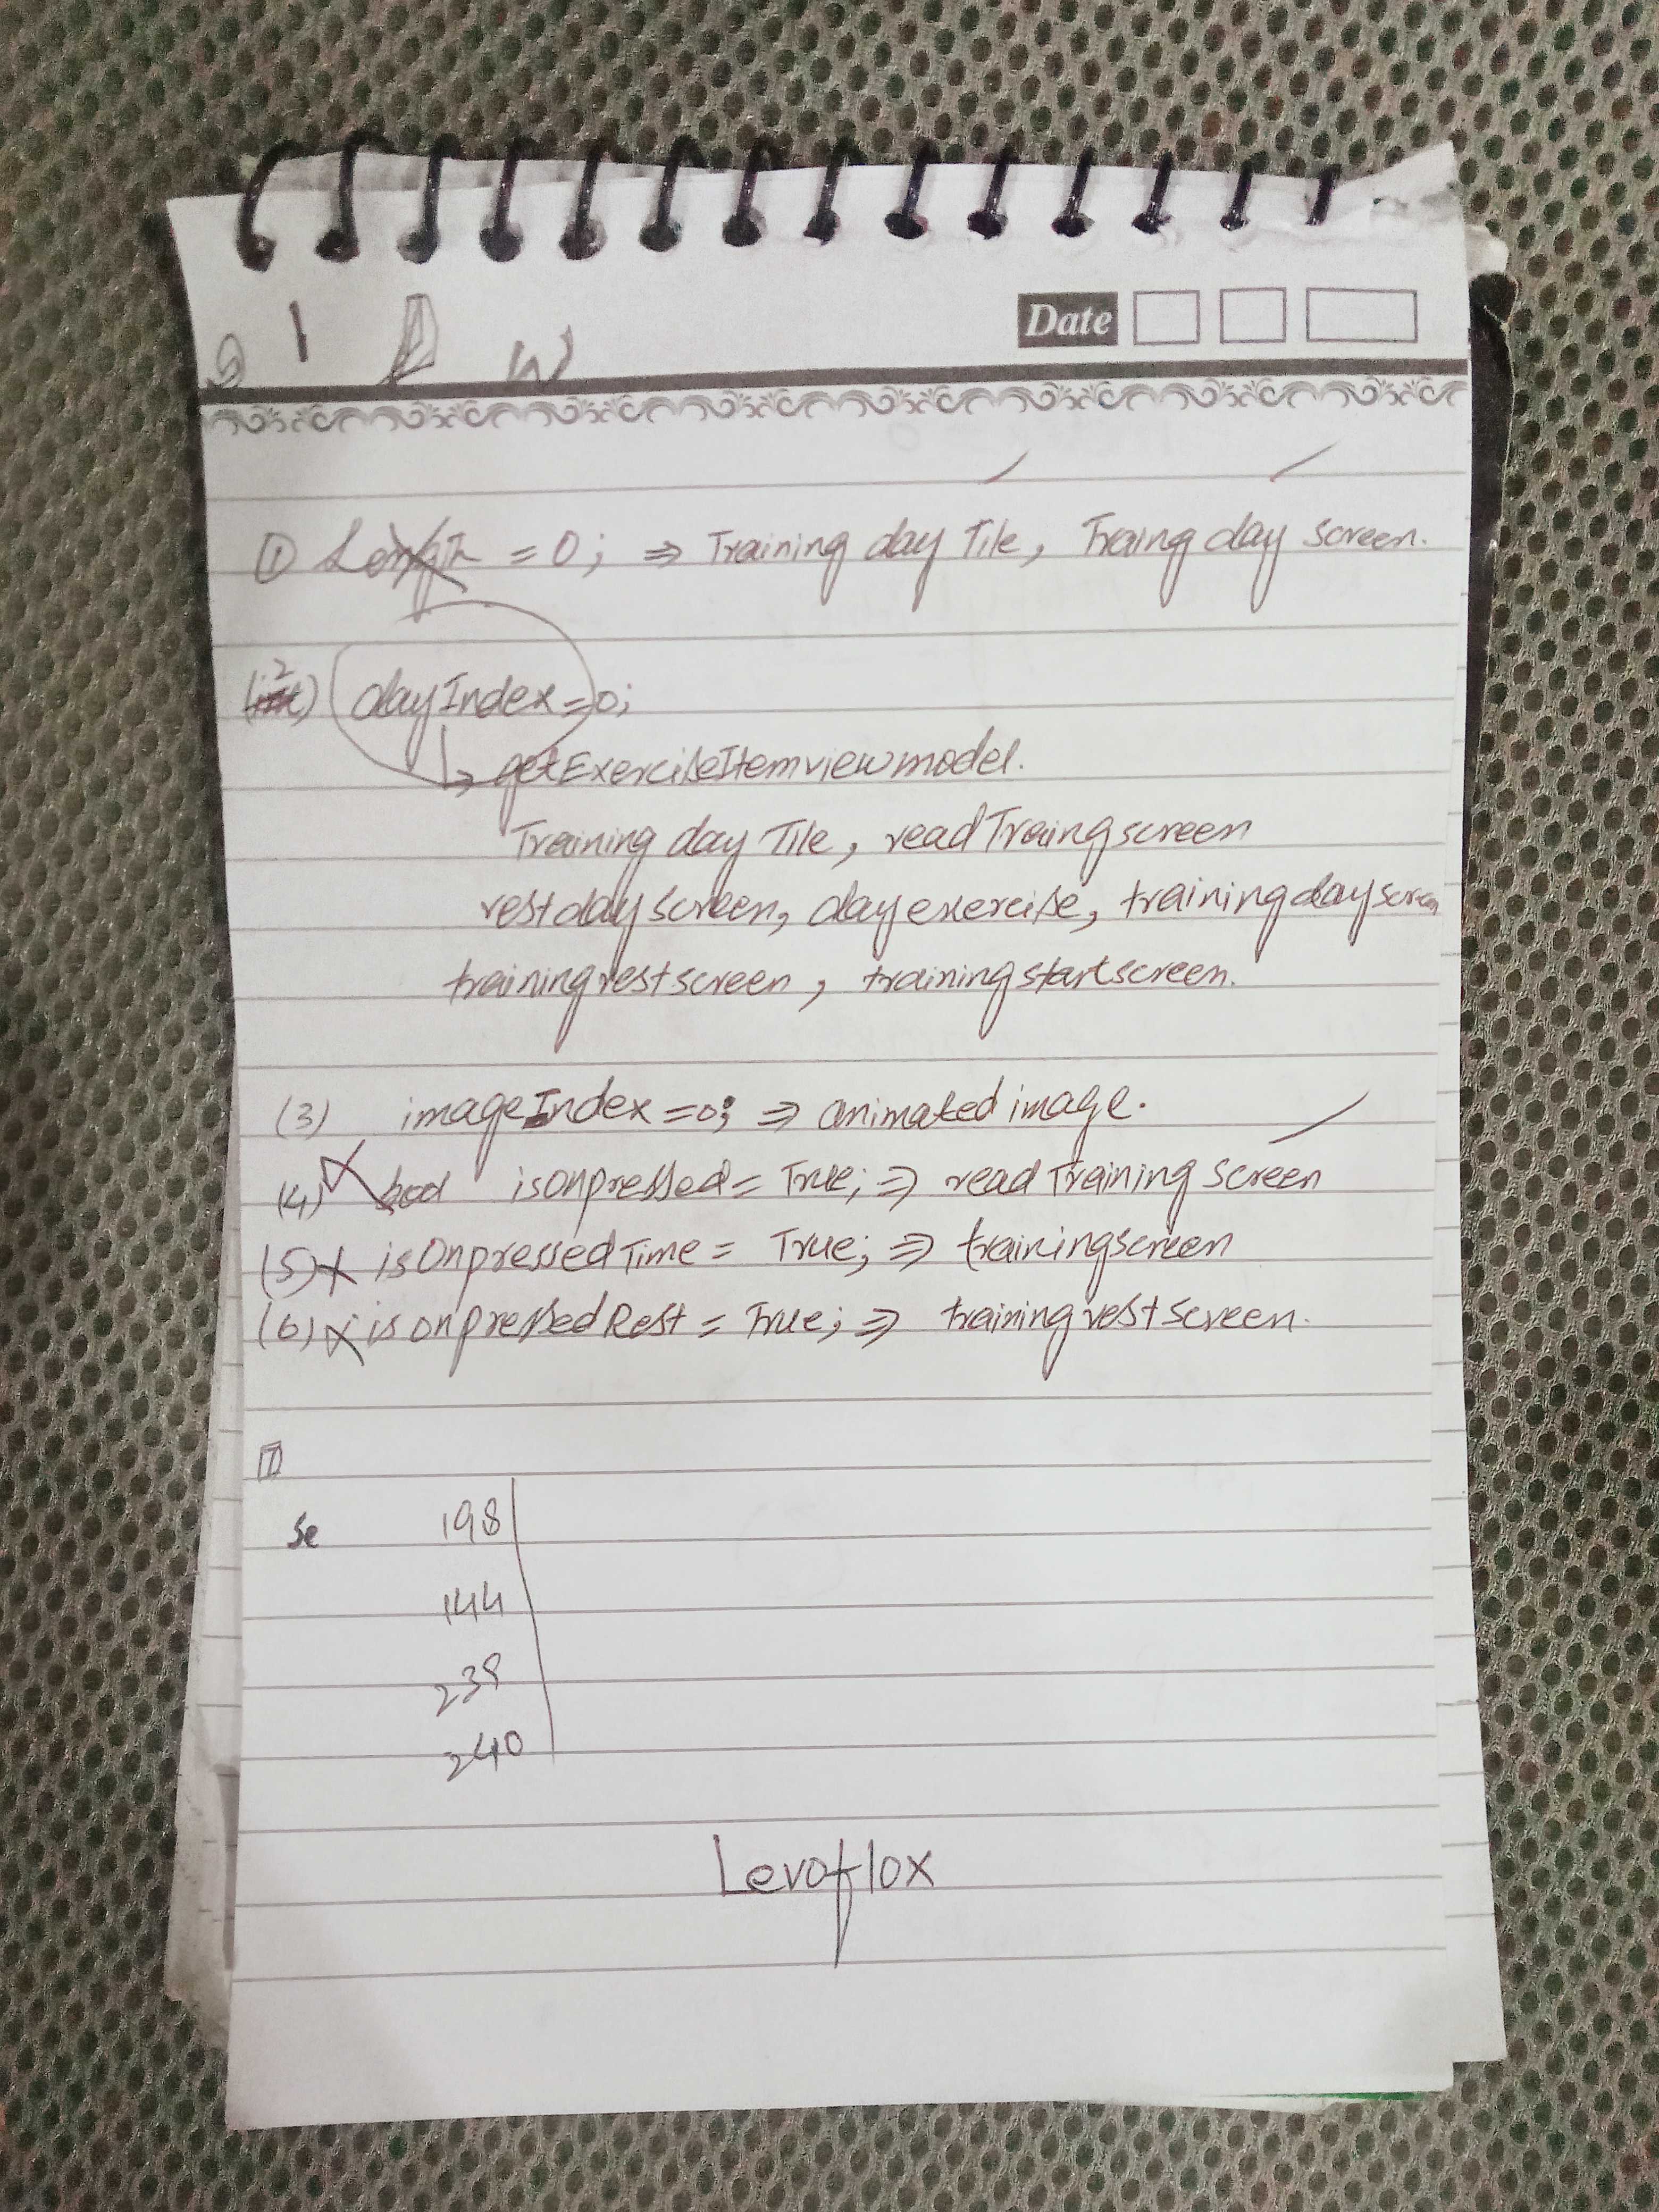 Date
① Length = 0; ⇒ Training day Tile, Traing day screen.
2) dayIndex = 0;
↳ getExerciseItemviewmodel.
Training day Tile, read Traing screen
restday screen, day exercise, training day screen
training rest screen, training start screen.
(3) imageIndex = 0; ⇒ animated image.
(4) bool isonpressed = True; ⇒ read Training screen
(5) x isOnpressedTime = True; ⇒ training screen
(6) x isonpressedRest = True; ⇒ training rest screen.
Se 198
144
239
240
Levoflox